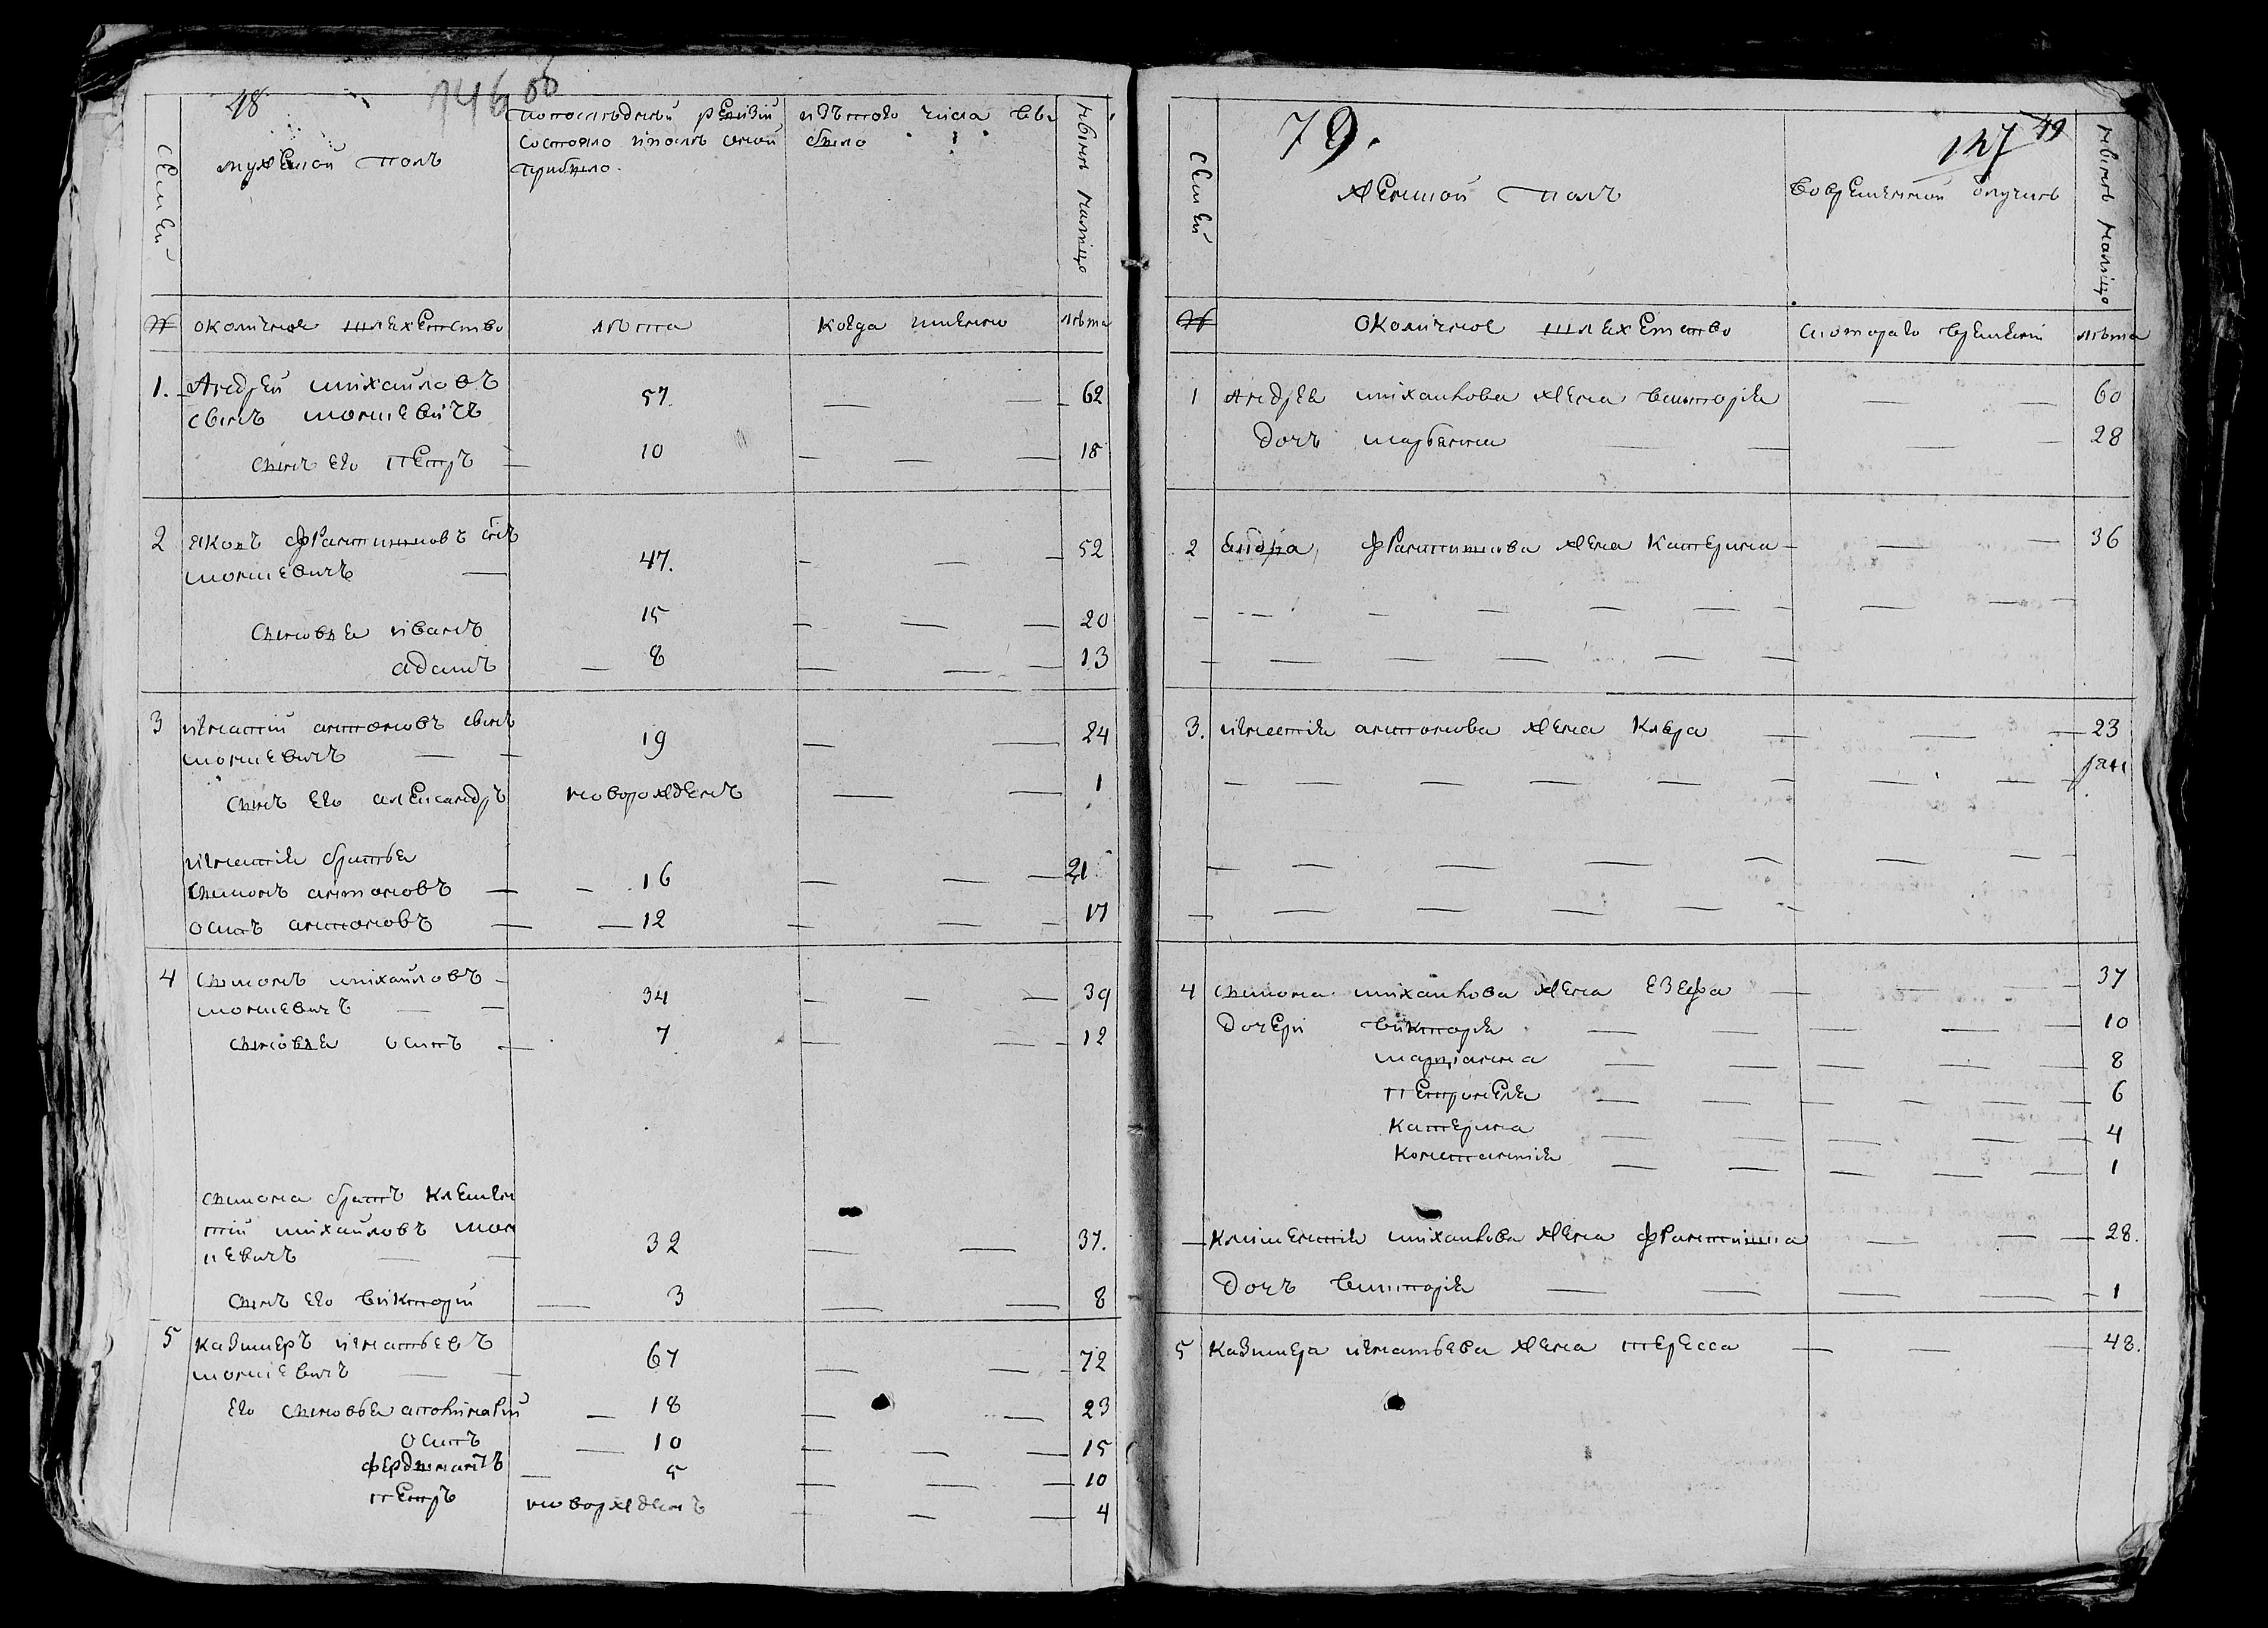 48
146 об
Семьи
мужеской полъ
попоследней ревизии
состояло ипосле оной
прибыло.
изътого числа выбыло
ныне налицо
№ околичное шляхетство лета когда имянно лета
1. Андрей михайловъ
сынъ монцевичъ 57. 62
сынъ его петръ 10 18
2 яковъ франтишковъ снъ
монцевичъ 47. 52
сыновья иванъ 15 20
адамъ 8 13
3 игнатий антоновъ сынъ
монцевичъ 19 24
сынъ его александръ новорожденъ 1
игнатия братья
сымонъ антоновъ 16 21
осипъ антоновъ 12 17
4 сымонъ михайловъ
монцевичъ 34 39
сыновья осипъ 7 12
сымона братъ клемен
тий михайловъ мон
цевичъ 32 37.
сынъ его викторий 3 8
5 казимеръ игнатьевъ
монцевичъ 67 72
его сыновья апольинарий 18 23
осипъ 10 15
фердинантъ 5 10
петръ новорожденъ 4
79.
127 49
Семьи
женской полъ
вовременной отлучке
ныне налицо
№ околичное шляхетство скоторого времени лета
1 андрея михайлова жена виктория 60
дочь марьянна 28
2 франтишкова жена катерина 36
3. игнатия антонова жена клара 23
4 сымона михайлова жена езефа 37
дочери виктория 10
марцианна 8
петронеля 6
катерина 4
констанция 1
климентия михайлова жена франтишка 28.
дочь виктория 1
5 казимера игнатьева жена тересса 48.